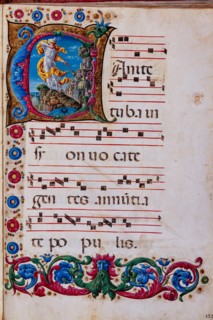 CAnite
tuba in
sy on uo cate
gen tes annūtia
te po pu lis.